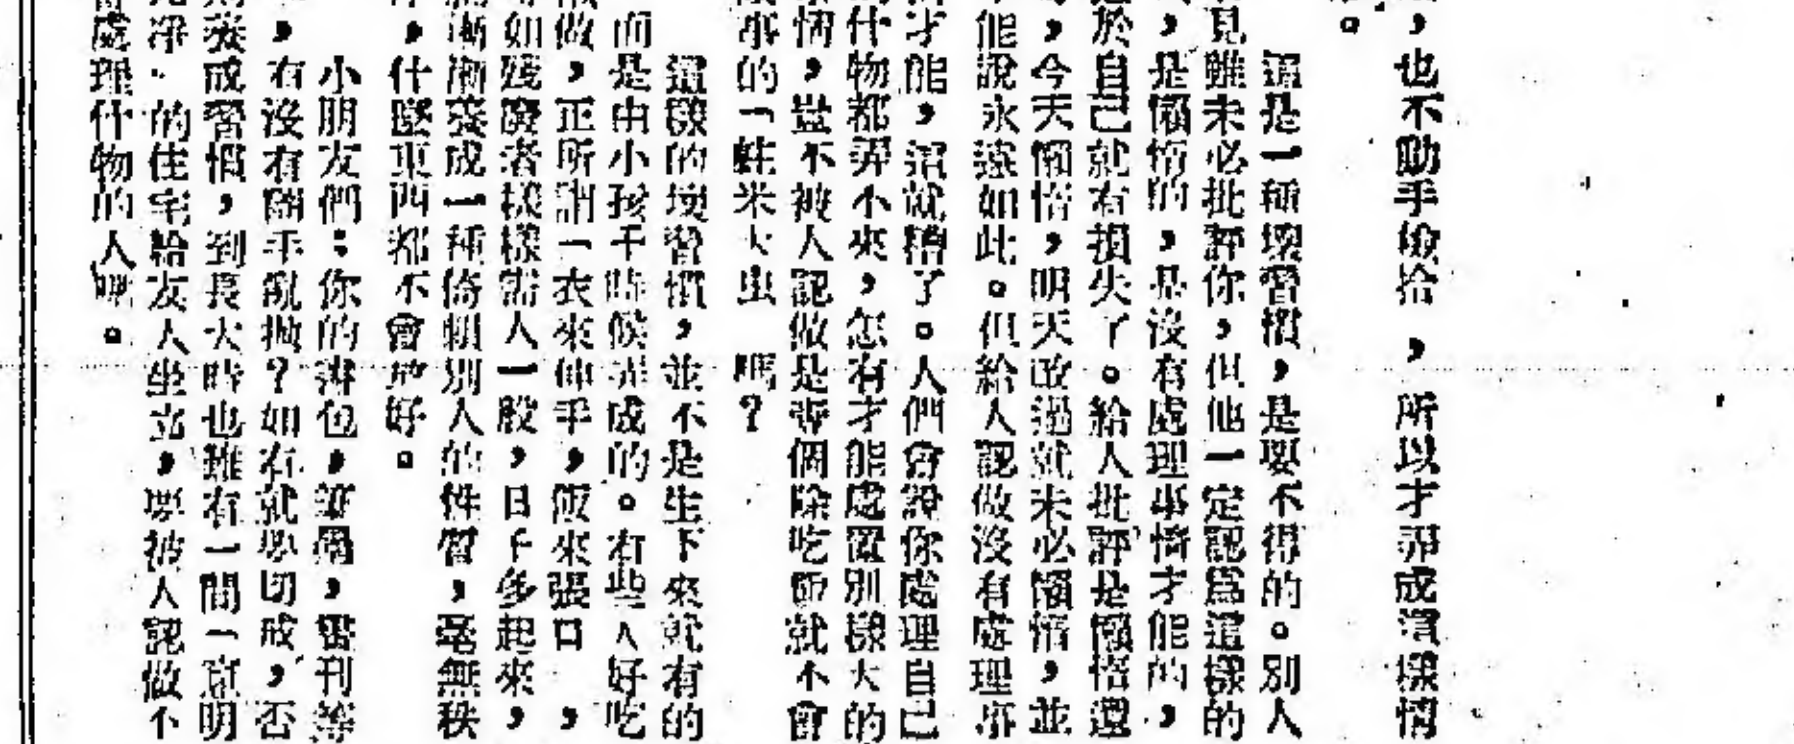 ，也不動手檢拾，所以才弄成這樣情
。
這是一種壞習慣，是要不得的。別人
見雖未必批評你，但他一定認爲這樣的
，是懶惰的，是沒有處理事情才能的，
於自己就有損失了。給人批評是懶惰還
，今天懶惰，明天改過就未必懶惰，並
能說永遠如此。但給人認做沒有處理事
才能，這就糟了。人們會說你處理自己
什物都弄不來，怎有才能處置別樣大的
情，豈不被人認做是專個除吃飯就不會
事的「蛀米大虫　嗎？
這樣的壞習慣，並不是生下來就有的
而是由小孩子時候弄成的。有些人好吃
做，正所謂「衣來伸手，飯來張口　，
如殘廢者樣樣需人一般，日子多起來，
漸漸養成一種倚賴別人的性質，毫無秩
，什麼東西都不會放好。
小朋友們：你的書包，筆墨，書刊等
，有沒有隨手亂拋？如有就要切戒，否
養成習慣，到長大時也雖有一間一窗明
淨．的住宅給友人坐立，要被人認做不
處理什物的人呢。